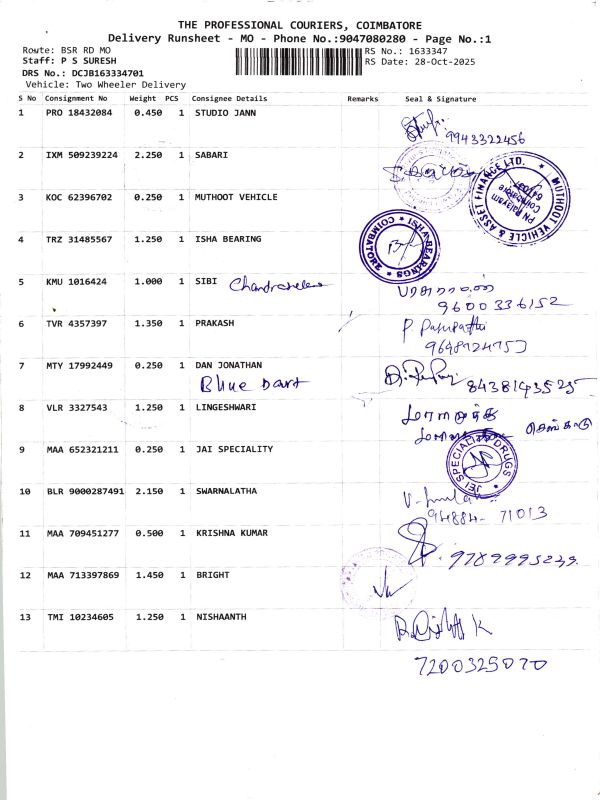 THE PROFESSIONAL COURIERS, COIMBATORE
Delivery Runsheet - MO - Phone No.:9047080280 - Page No.:1
Route: BSR RD MO
RS No.: 1633347
Staff: P S SURESH
RS Date: 28-Oct-2025
DRS No.: DCJB163334701
Vehicle: Two Wheeler Delivery
S No Consignment No Weight PCS Consignee Details Remarks Seal & Signature
1 PRO 18432084 0.450 1 STUDIO JANN
9943322456
2 IXM 509239224 2.250 1 SABARI
MUTHOOT VEHICLE & ASSET FINANCE LTD.
PN Palayam
Coimbatore
3 KOC 62396702 0.250 1 MUTHOOT VEHICLE
4 TRZ 31485567 1.250 1 ISHA BEARING
COIMBATORE
BEARINGS
5 KMU 1016424 1.000 1 SIBI
9600336152
6 TVR 4357397 1.350 1 PRAKASH
7 MTY 17992449 0.250 1 DAN JONATHAN
Blue Dart
8438143525
8 VLR 3327543 1.250 1 LINGESHWARI
9 MAA 652321211 0.250 1 JAI SPECIALITY
JEI SPECIALITY DRUGS
10 BLR 9000287491 2.150 1 SWARNALATHA
94884-71013
11 MAA 709451277 0.500 1 KRISHNA KUMAR
9789995239
12 MAA 713397869 1.450 1 BRIGHT
13 TMI 10234605 1.250 1 NISHAANTH
7200325070